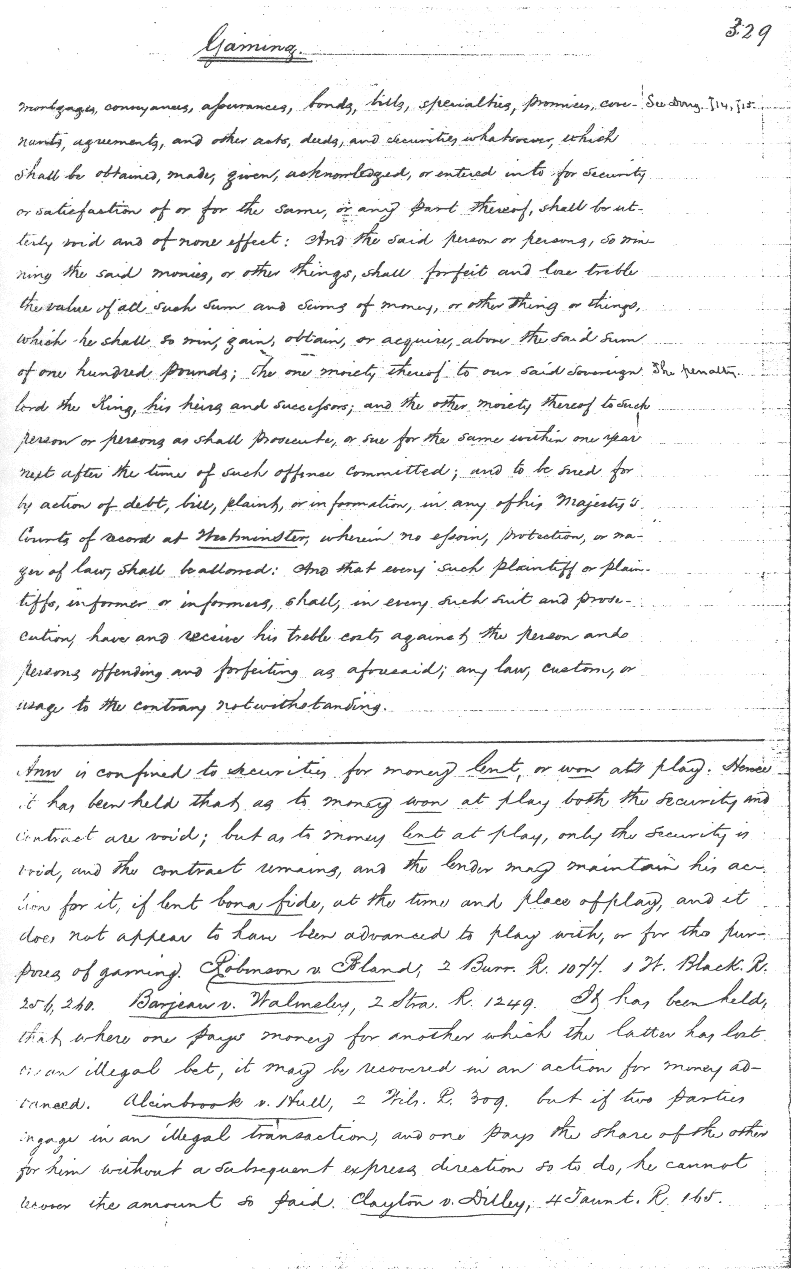 329
Gaming.
mortgages, conveyances, assurances, bonds, bills, specialties, promises, cove-
See Doug. 714, 715.
nants, agreements, and other acts, deeds, and securities whatsoever, which
shall be obtained, made, given, acknowledged, or entered into for security
or satisfaction of or for the same, or any part thereof, shall be ut-
terly void and of none effect: And the said person or persons, so win-
ning the said monies, or other things, shall forfeit and lose treble
the value of all such sum and sums of money, or other thing or things,
which he shall so win, gain, obtain, or acquire, above the said sum
of one hundred pounds; the one moiety thereof to our said sovereign
The penalty.
lord the King, his heirs and successors; and the other moiety thereof to such
person or persons as shall prosecute, or sue for the same within one year
next after the time of such offence committed; and to be sued for
by action of debt, bill, plaint, or information, in any of his Majesty's
Courts of record at Westminster, wherein no essoin, protection, or wa-
ger of law, shall be allowed: And that every such plaintiff or plain-
tiffs, informer or informers, shall, in every such suit and prose-
cution, have and receive his treble costs against the person and
persons offending and forfeiting as aforesaid; any law, custom, or
usage to the contrary notwithstanding.
Ann is confined to securities for money lent, or won at play. Hence
it has been held that as to money won at play both the security and
contract are void; but as to money lent at play, only the security is
void, and the contract remains, and the lender may maintain his ac-
tion for it, if lent bona fide, at the time and place of play, and it
does not appear to have been advanced to play with, or for the pur-
poses of gaming. Robinson v. Bland, 2 Burr. R. 1077. 1 W. Black. R.
256, 260. Barjeau v. Walmsley, 2 Stra. R. 1249. It has been held,
that where one pays money for another which the latter has lost
on an illegal bet, it may be recovered in an action for money ad-
vanced. Alcinbrook v. Hall, 2 Wils. R. 309. but if two parties
engage in an illegal transaction, and one pays the share of the other
for him without a subsequent express direction so to do, he cannot
recover the amount so paid. Clayton v. Dilley, 4 Taunt. R. 165.